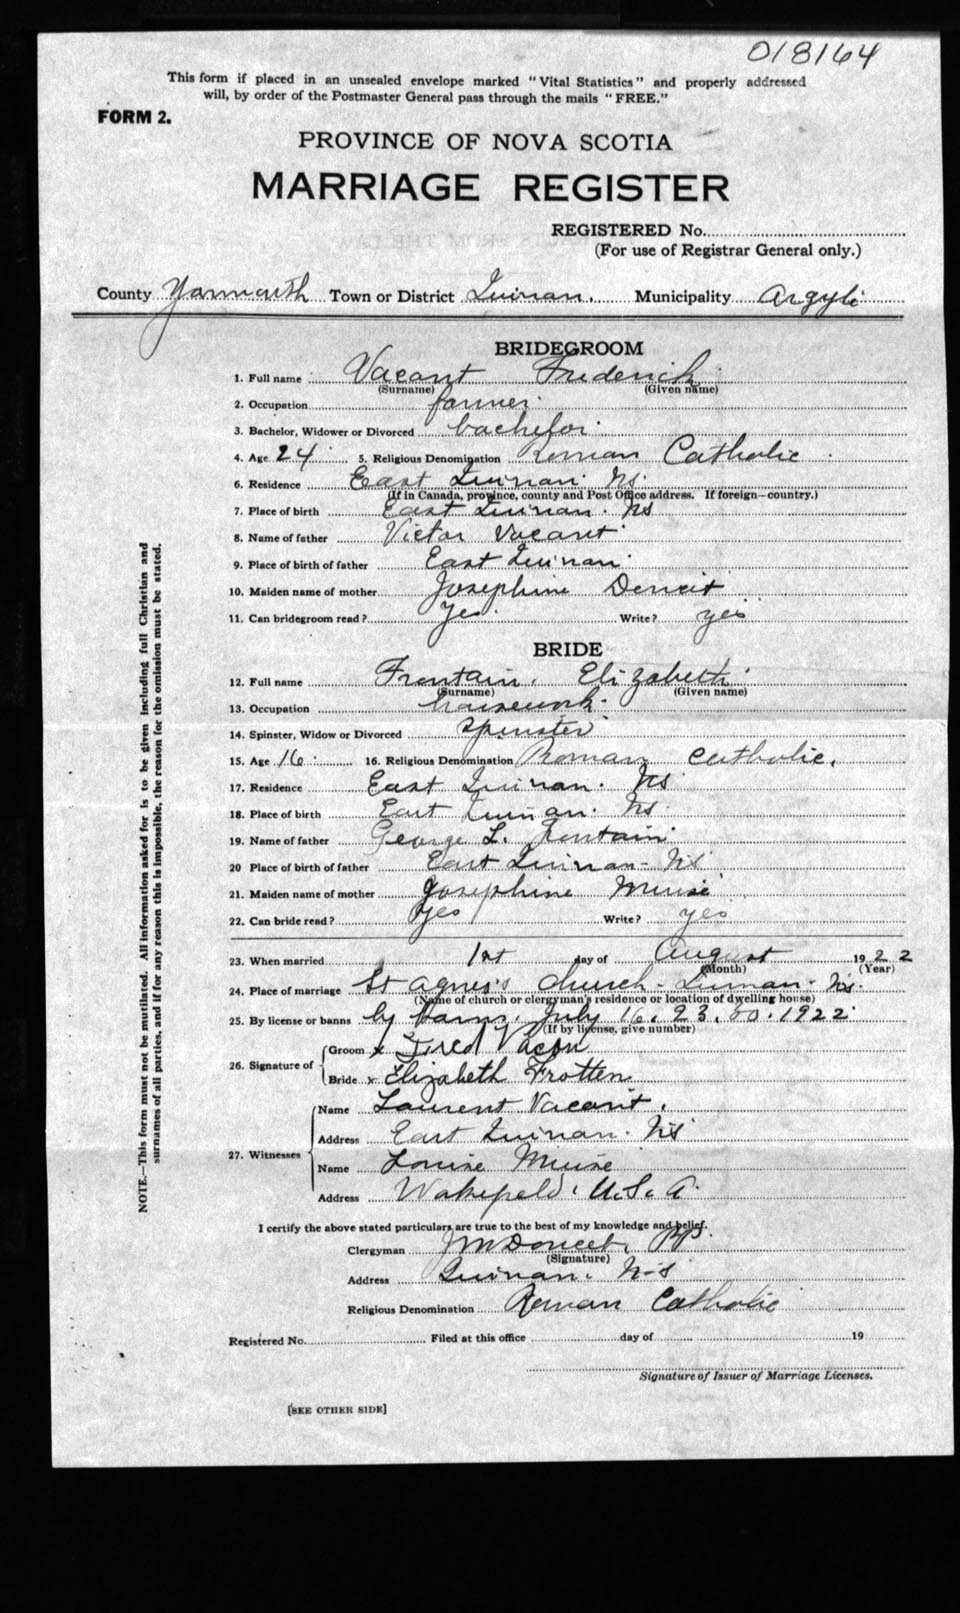 018164
This form if placed in an unsealed envelope marked "Vital Statistics" and properly addressed
will, by order of the Postmaster General pass through the mails "FREE."
FORM 2.
PROVINCE OF NOVA SCOTIA
MARRIAGE REGISTER
REGISTERED No.
(For use of Registrar General only.)
County Yarmouth Town or District Quinan. Municipality Argyle
BRIDEGROOM
1. Full name Vacant Frederick
(Surname) (Given name)
2. Occupation farmer
3. Bachelor, Widower or Divorced bachelor
4. Age 24 5. Religious Denomination Roman Catholic
6. Residence East Quinan. Ns.
(If in Canada, province, county and Post Office address. If foreign—country.)
7. Place of birth East Quinan. Ns
8. Name of father Victor Vacant
9. Place of birth of father East Quinan
10. Maiden name of mother Josephine
11. Can bridegroom read? Yes. Write? yes
BRIDE
12. Full name Frontain. Elizabeth
(Surname) (Given name)
13. Occupation housework.
14. Spinster, Widow or Divorced Spinster
15. Age 16 16. Religious Denomination Roman Catholic.
17. Residence East Quinan. Ns
18. Place of birth East Quinan. Ns
19. Name of father George L. Frontain
20 Place of birth of father East Quinan- Ns
21. Maiden name of mother Josephine Muise
22. Can bride read? Yes Write? yes
23. When married 1st day of August 1922
(Month) (Year)
24. Place of marriage St Agnes's Church - Quinan - Ns.
(Name of church or clergyman's residence or location of dwelling house)
25. By license or banns by banns. July 16. 23. 30. 1922
(If by license, give number)
26. Signature of Groom x Fred Vacon
Bride x Elizabeth Frotten
27. Witnesses Name Laurent Vacant.
Address East Quinan. Ns
Name Louise Muise
Address Wakefield. U.S.A.
I certify the above stated particulars are true to the best of my knowledge and belief.
Clergyman J M Doucet, PP.
(Signature)
Address Quinan. N-S
Religious Denomination Roman Catholic
Registered No. Filed at this office day of 19
Signature of Issuer of Marriage Licenses.
[SEE OTHER SIDE]
NOTE.—This form must not be mutilated. All information asked for is to be given including full Christian and
surnames of all parties, and if for any reason this is impossible, the reason for the omission must be stated.